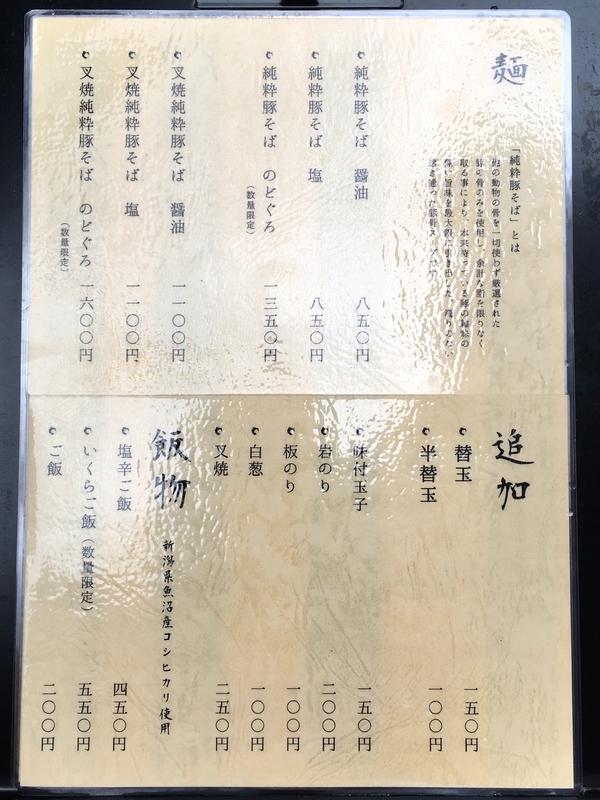 麺
「純粋豚そば」とは
他の動物の骨を一切使わず厳選された
豚の骨のみを使用し、余計な脂を限りなく
純粋豚そば　醤油　八五〇円
純粋豚そば　塩　八五〇円
純粋豚そば　のどぐろ　一三五〇円
（数量限定）
叉焼純粋豚そば　醤油　一一〇〇円
叉焼純粋豚そば　塩　一一〇〇円
叉焼純粋豚そば　のどぐろ　一六〇〇円
（数量限定）
追加
替玉　一五〇円
半替玉　一〇〇円
味付玉子　一五〇円
岩のり　二〇〇円
板のり　一〇〇円
白葱　一〇〇円
叉焼　二五〇円
飯物
新潟県魚沼産コシヒカリ使用
塩辛ご飯　四五〇円
いくらご飯（数量限定）　五五〇円
ご飯　二〇〇円